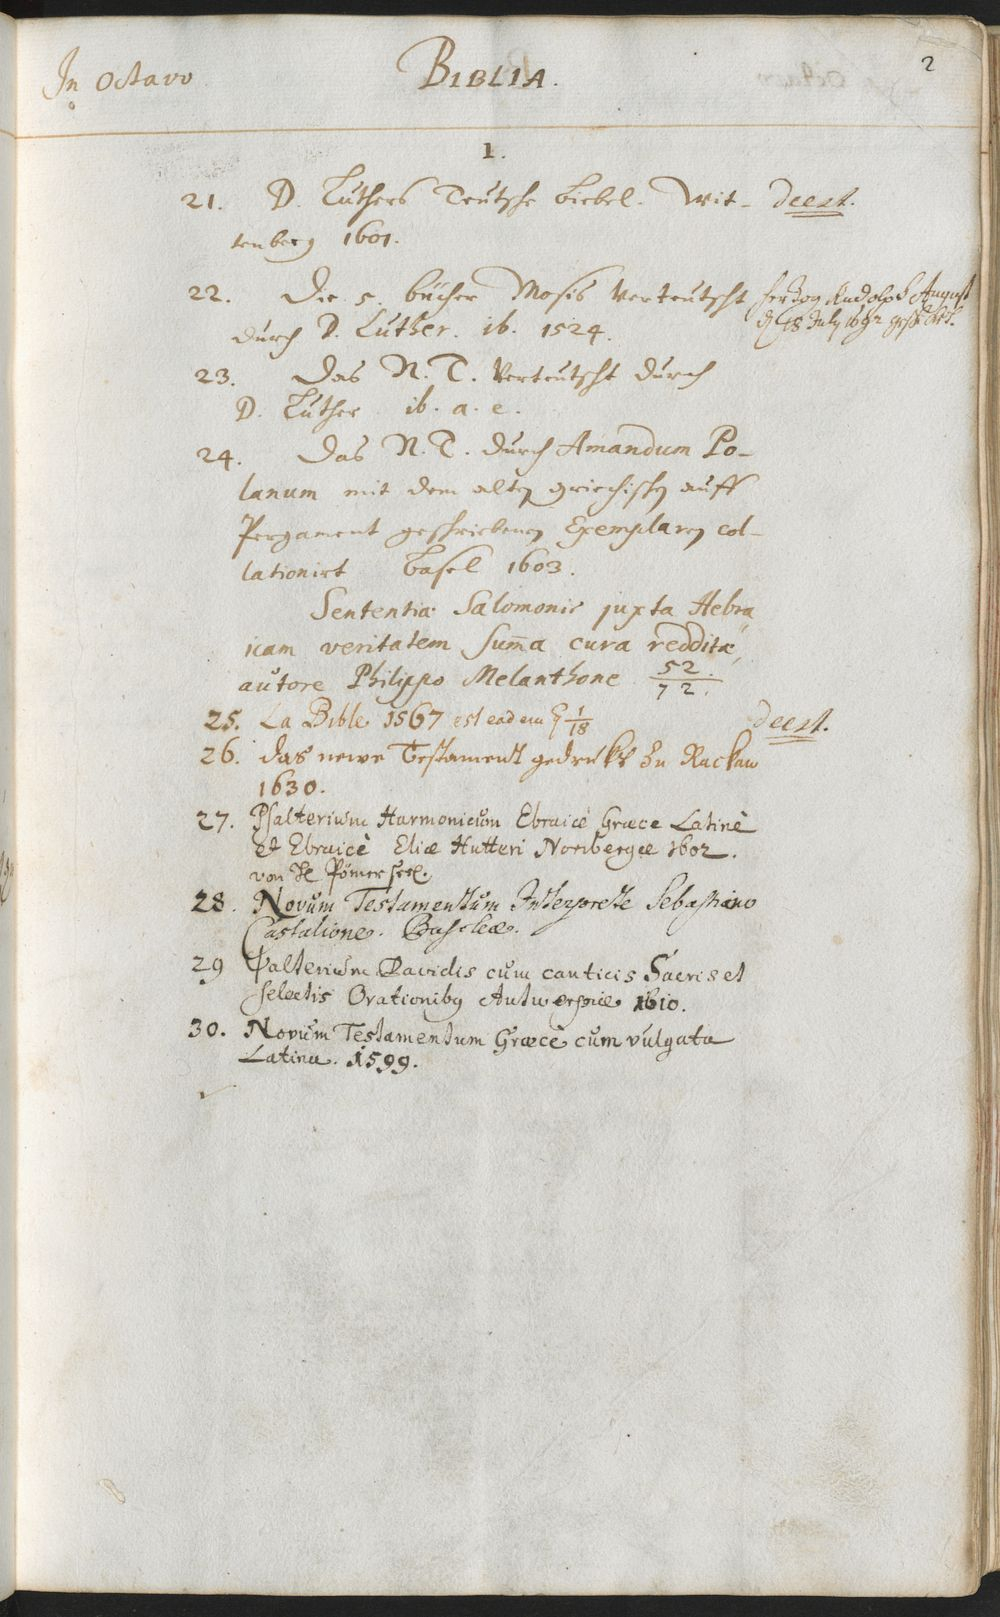 In Octavo
BIBLIA.
2
1.
21. D. Luthers Teutsche biebel. Wit- deest.
tenberg 1601.
22. Die 5. bücher Mosis Verteutscht Hertzog Rudolph August
durch D. Luther. ib. 1524. 18 July 1692
23. Das N. T. Verteutscht durch
D. Luther ib. a. e.
24. Das N. T. durch Amandum Po-
lanum mit dem alten griechischen auff
Pergament geschriebenen Exemplaren col-
lationirt Basel 1603.
Sententiæ Salomonis juxta Hebra
icam veritatem sum̄a cura redditæ,
autore Philippo Melanthone 52/72.
25. La Bible 1567 est eadem 1/18 deest.
26. das newe Testament gedruckt zu Rackaw
1630.
27. Psalterium Harmonicum Ebraicè Græce Latinè
et Ebraicè Eliæ Hutteri Noribergæ 1602.
von H Pömer seel.
28. Novum Testamentum Interprete Sebastiano
Castalione. Basileæ.
29 Psalterium Davidis cum canticis Sacris et
selectis Orationibus Antwerpiæ 1610.
30. Novum Testamentum Græcè cum vulgata
Latina. 1599.